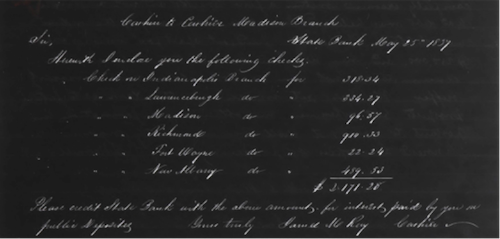 Cashier to Cashier Madison Branch
Sir, State Bank May 25th 1837
Herewith I enclose you the following checks.
Check on Indianapolis Branch for 318.34
" " Lawrenceburgh do " 234.27
" " Madison do " 96.57
" " Richmond do "
" " Fort Wayne do " 22.24
" " New Albany do " 489.53
$ 2.171.28
Please credit State Bank with the above amounts, for interest paid by you on
public Deposites Yours truly Cashier